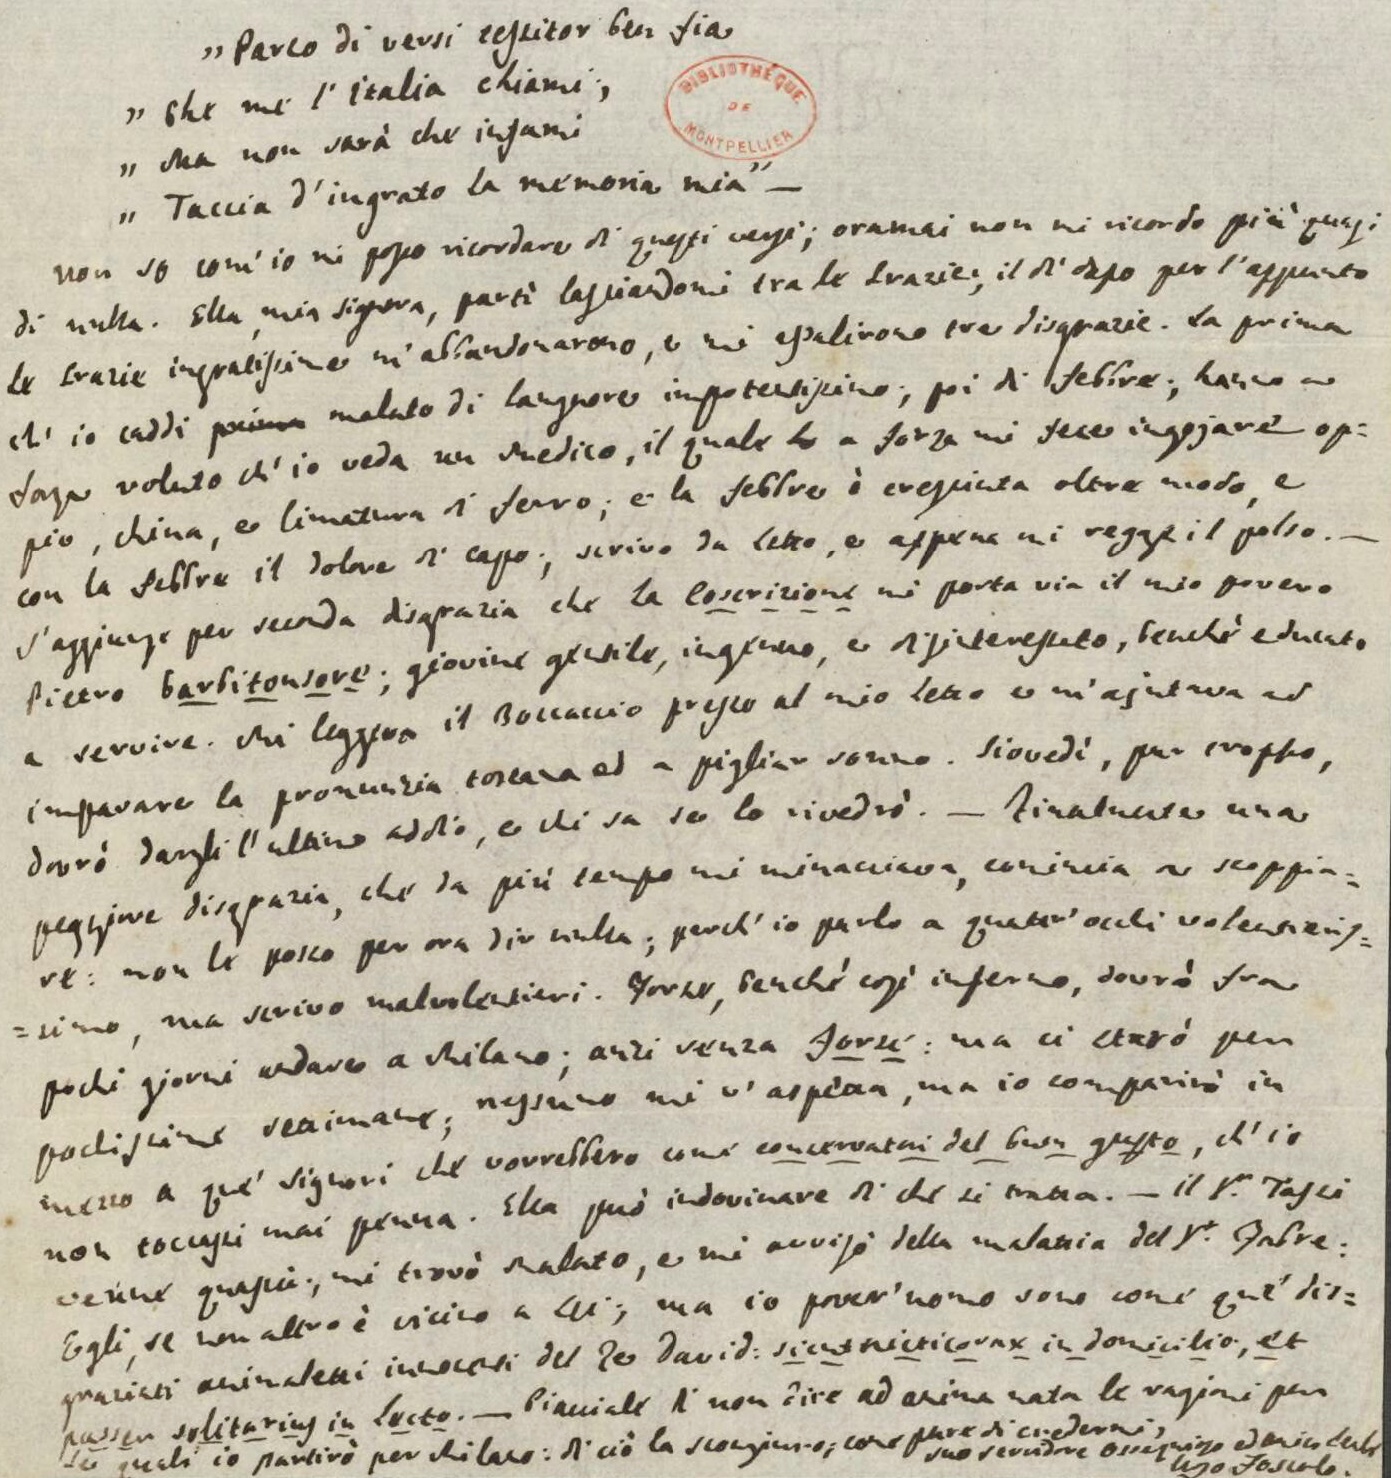 „ Parco di versi tessitor ben fia
„ Che me l'Italia chiami;
BIBLIOTHÈQUE
DE
MONTPELLIER
„ Ma non sarà che infami
„ Taccia d'ingrato la memoria mia" —
Non so com'io mi posso ricordare di questi versi; oramai non mi ricordo più quasi
di nulla. Ella, mia Signora, partì lasciandomi tra le Grazie; il dì dopo per l'appunto
le Grazie ingratissime m'abbandonarono, e mi assalirono tre disgrazie. La prima
ch'io caddi malato di languore impotentissimo; poi di febbre; hanno a
forza voluto ch'io veda un Medico, il quale a forza mi fece ingojare op=
pio, china, e limatura di ferro; e la febbre è cresciuta oltre modo, e
con la febbre il dolore di capo; scrivo da letto, e appena mi regge il polso. —
S'aggiunge per seconda disgrazia che la Coscrizione mi porta via il mio povero
Pietro barbitonsore; giovine gentile, ingenuo, e disinteressato, benchè educato
a servire. Mi leggeva il Boccaccio presso al mio letto e m'ajutava ad
imparare la pronunzia toscana ed a pigliar sonno. Giovedì, pur troppo,
dovrò dargli l'ultimo addio, e chi sa se lo rivedrò. — Finalmente una
peggiore disgrazia, che da più tempo mi minacciava, comincia a scoppia=
re: non le posso per ora dir nulla; perch'io parlo a quattr'occhi volentieris=
=simo, ma scrivo malvolentieri. Forse, benchè così infermo, dovrò fra
pochi giorni andare a Milano; anzi senza forse: ma ci starò per
pochissime settimane; nessuno mi v'aspetta, ma io comparirò in
mezzo a que' signori che vorrebbero come conservatori del buon gusto, ch'io
non toccassi mai penna. Ella può indovinare di che si tratta. — Il Sr. Tassi
venne quassù; mi trovò malato, e mi avvisò della malattia del Sr. Fabre:
Egli, se non altro è vicino a Lei; ma io pover'uomo sono come que' dis=
graziati animaletti innocenti del Re David: sicut nicticorax in domicilio, et
passer solitarius in tecto. — Piacciale di non dire ad anima nata le ragioni per
le quali io partirò per Milano: di ciò la scongiuro; come pure di credermi,
suo servidore ossequioso ed amico
Ugo Foscolo.